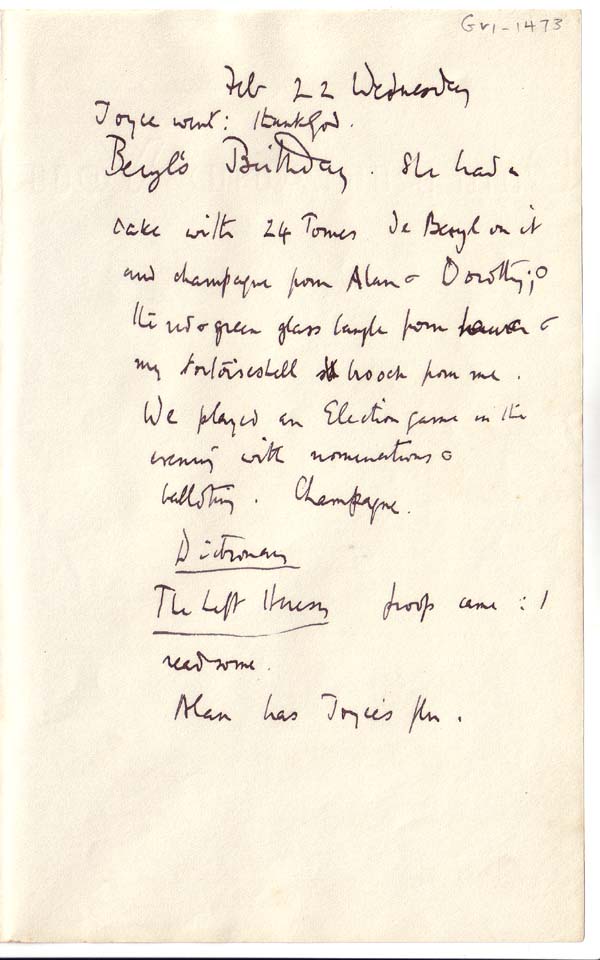 GVI-1473
Feb 22 Wednesday
Joyce went: thank God.
Beryl's Birthday. She had a
cake with 24 Tomes de Beryl on it
and champagne from Alan & Dorothy;
the red & green glass bangle from &
my tortoiseshell brooch from me.
We played an Election game in the
evening with nominations &
balloting. Champagne.
Dictionary
The Left Heresy proofs came: I
read some.
Alan has Joyce's flu.